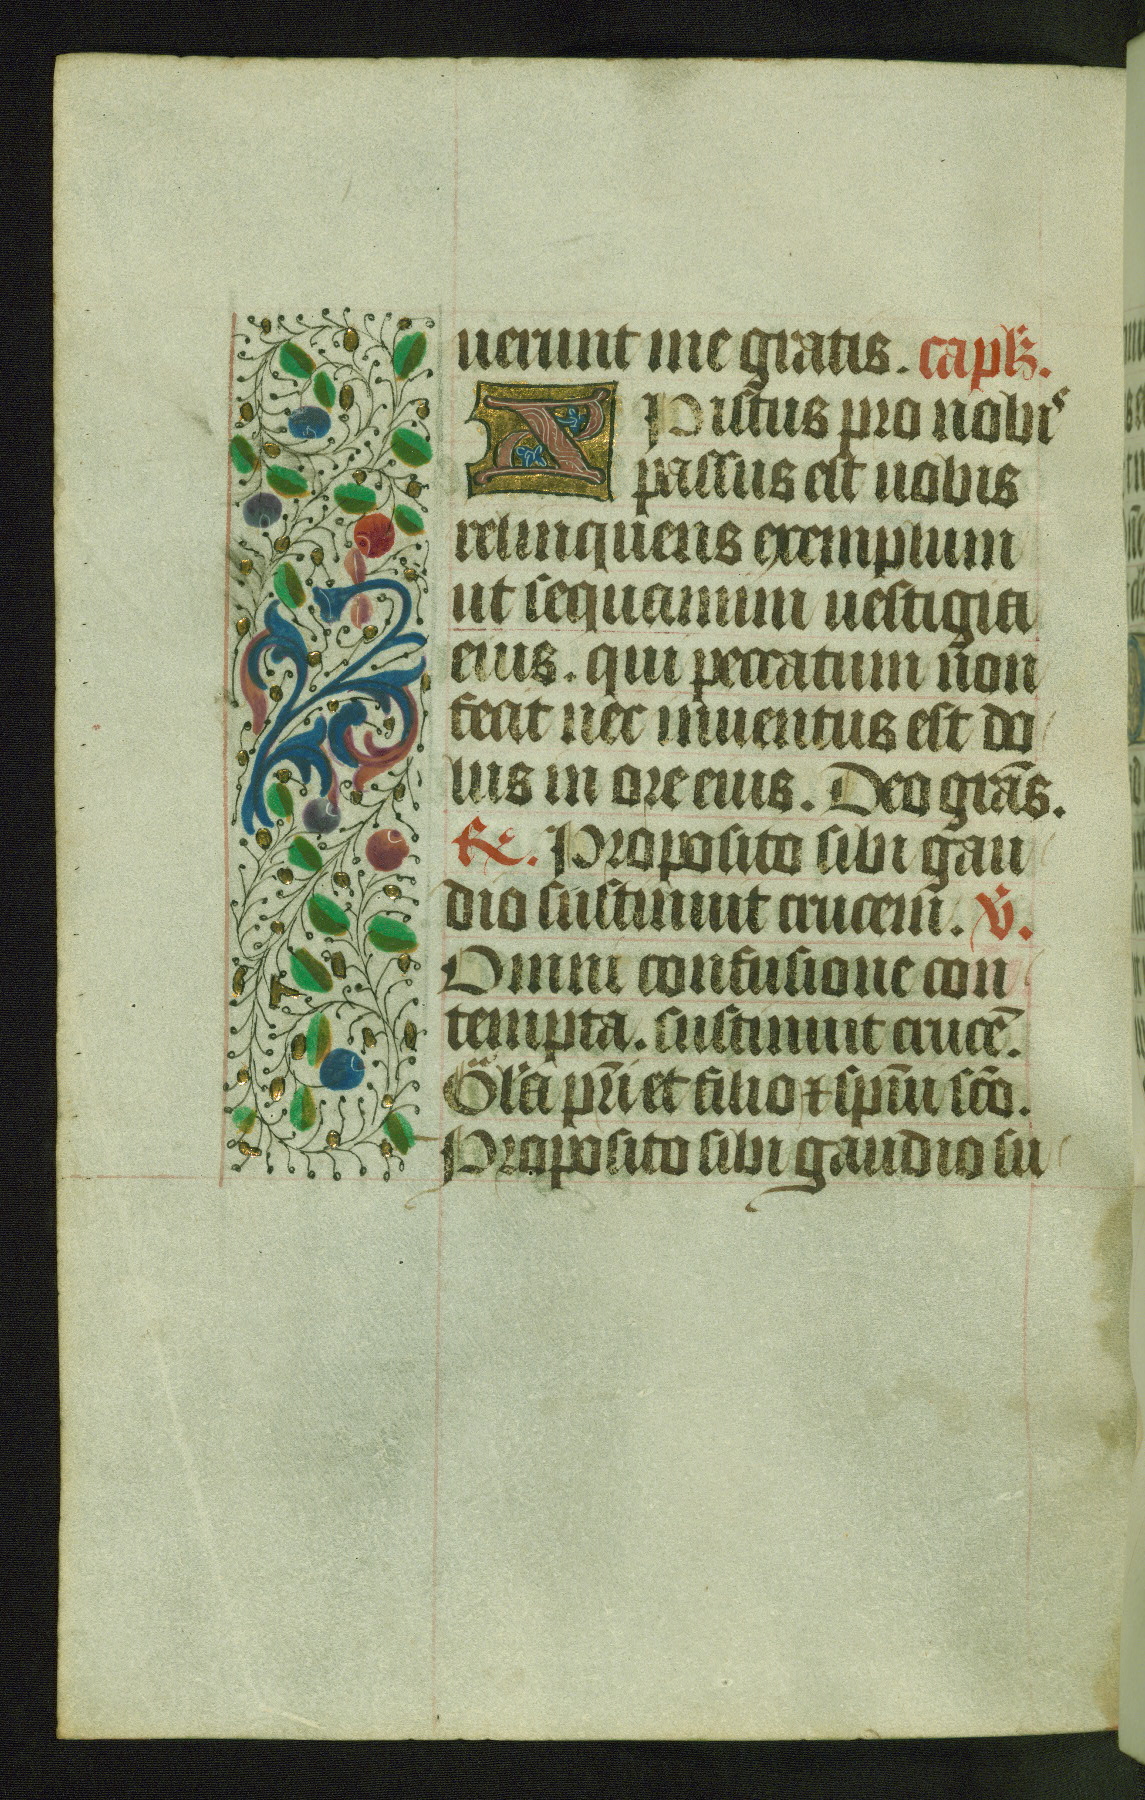 uerunt me gratis. capł.
Xpistus pro nobis
passus est uobis
relinquens exemplum
ut sequamini uestigia
eius. qui peccatum non
fecit nec inuentus est do
lus in ore eius. Deo grãs.
R. Proposito sibi gau
dio sustinuit crucem. V.
Omni confusione con
tempta. sustinuit crucē.
Glīa pr̄i et filio ⁊ spūi scō.
Proposito sibi gaudio su